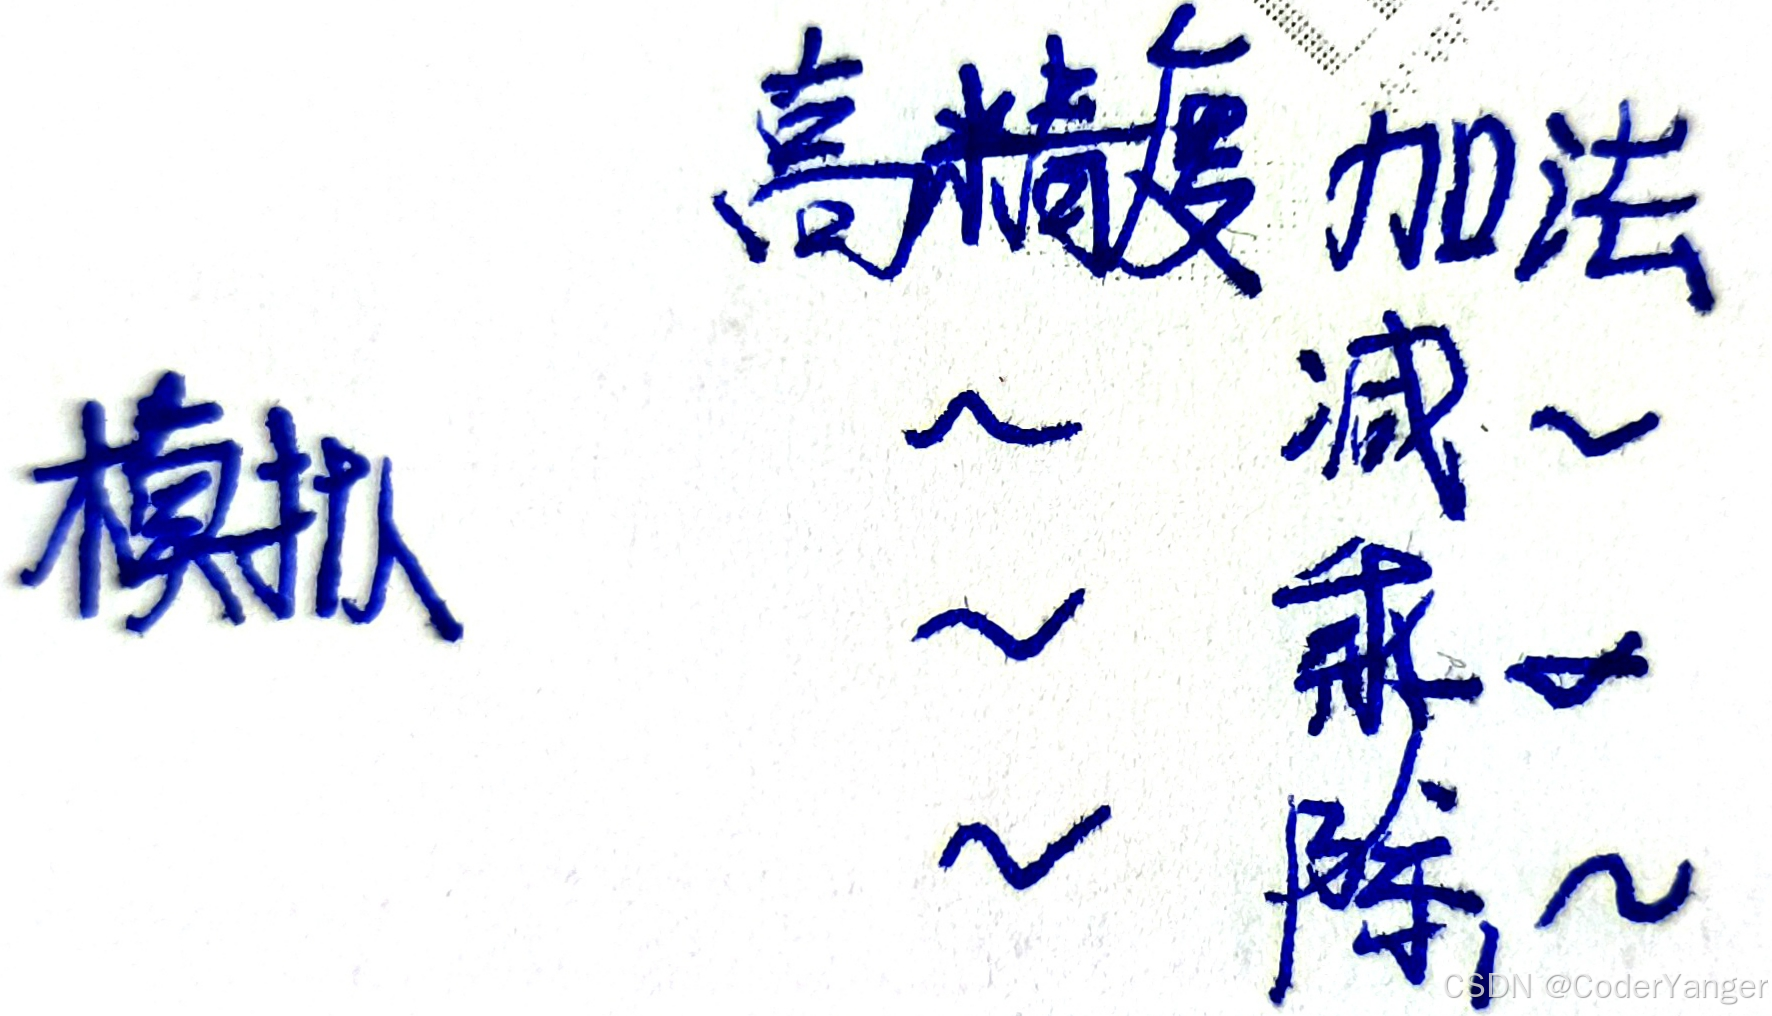 高精度 加法
~ 减 ~
模拟
~ 乘 ~
~ 除 ~
CSDN @CoderYanger